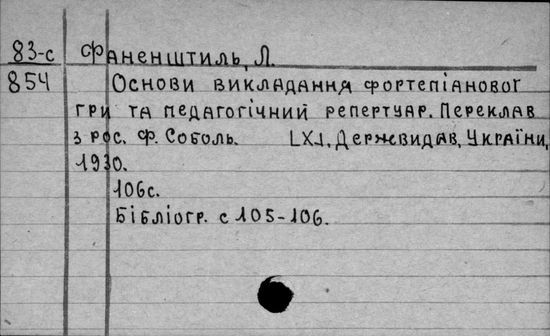 83-с Фаненштиль, Л.
854 Основи викладання фортепіановоі
гри та педагогічний репертуар. Переклав
з рос. Ф. Соболь. [Х], Держвидав, України,
1930.
106с.
Бібліогр. с 105-106.